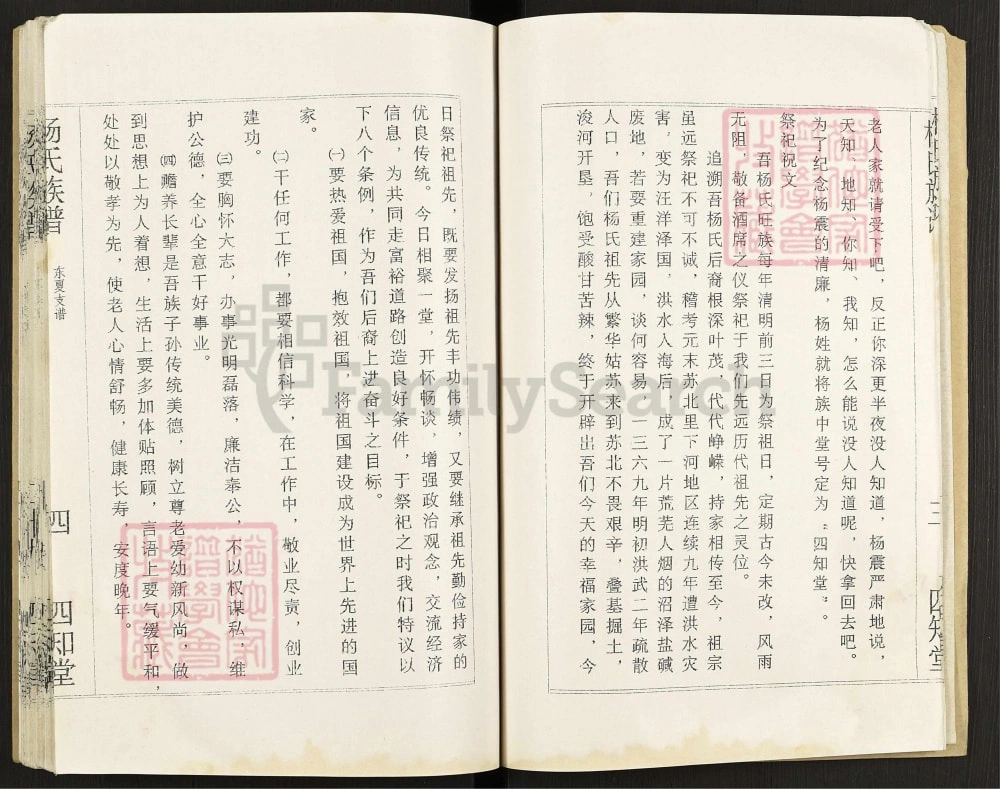 老人家就请受下吧，反正你深更半夜没人知道，杨震严肃地说，
天知、地知、你知、我知，怎么能说没人知道呢，快拿回去吧。
为了纪念杨震的清廉，杨姓就将族中堂号定为“四知堂”。
祭祀祝文
吾杨氏旺族每年清明前三日为祭祖日，定期古今未改，风雨
无阻，敬备酒席之仪祭祀于我们先远历代祖先之灵位。
追溯吾杨氏后裔根深叶茂，代代峥嵘，持家相传至今，祖宗
虽远祭祀不可不诚，稽考元末苏北里下河地区连续九年遭洪水灾
害，变为汪洋泽国，洪水入海后，成了一片荒芜人烟的沼泽盐碱
废地，若要重建家园，谈何容易，一三六九年明初洪武二年疏散
人口，吾们杨氏祖先从繁华姑苏来到苏北不畏艰辛，叠基掘土，
浚河开垦，饱受酸甘苦辣，终于开辟出吾们今天的幸福家园，今
三
四知堂
日祭祀祖先，既要发扬祖先丰功伟绩，又要继承祖先勤俭持家的
优良传统。今日相聚一堂，开怀畅谈，增强政治观念，交流经济
信息，为共同走富裕道路创造良好条件，于祭祀之时我们特议以
下八个条例，作为吾们后裔上进奋斗之目标。
㈠要热爱祖国，抱效祖国，将祖国建设成为世界上先进的国
家。
㈡干任何工作，都要相信科学，在工作中，敬业尽责，创业
建功。
㈢要胸怀大志，办事光明磊落，廉洁奉公，不以权谋私，维
护公德，全心全意干好事业。
㈣赡养长辈是吾族子孙传统美德，树立尊老爱幼新风尚，做
到思想上为人着想，生活上要多加体贴照顾，言语上要气缓平和，
处处以敬孝为先，使老人心情舒畅，健康长寿，安度晚年。
杨氏族谱
东夏支谱
四
四知堂
FamilySearch